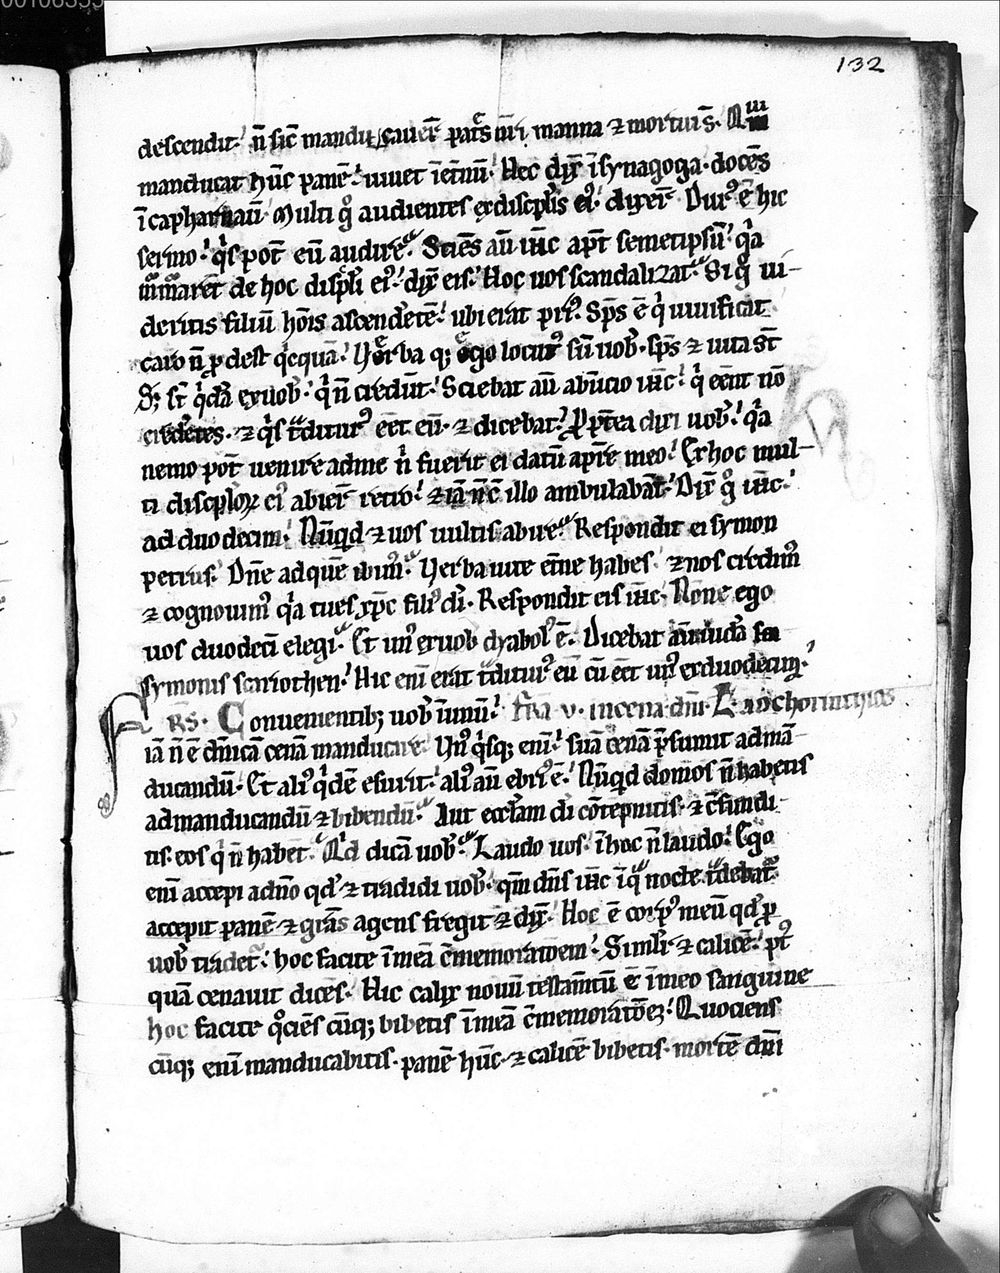 132
descendit. n̄ sic̄ mandu cauer̄ patr̄s nr̄i manna ⁊ mortui s̄. Qui
manducat hūc panē. uiuet ī et̄nū. Hec dix̄ ī synagoga. docēs
ī capharnaū. Multi gͦ audientes ex discipl̄is eiꝰ. dixer̄. Durꝰ ē hic
sermo. qͥs pot̄ eū audire. Sciēs aū ih̄c ap̄t semetipsū. qͥa
murmurarēt de hoc discipl̄i eiꝰ. dix̄ eis. Hoc uos scandalizat. Si gͦ ui-
deritis filiū hōis ascendētē. ubi erat priꝰ. Sp̄s ē qͥ uiuificat
caro n̄ ꝓdest qͥcquā. Uerba q; ego locutꝰ sū uob̄. sp̄s ⁊ uita st̄
S; st̄ qͥdā ex uob̄. qͥ n̄ credūt. Sciebat aū ab inicio ih̄c. qͥ eēnt nō
credētes. ⁊ qͥs tͣditurꝰ eēt eū. ⁊ dicebat. Ꝓpt̄ea dixi uob̄. qͥa
nemo pot̄ uenire ad me nͥ fuerit ei datū a pr̄e meo. Ex hoc mul-
ti discipl̄oꝝ eiꝰ abier̄ retro. ⁊ iā n̄ c̄ illo ambulabāt. Dix̄ gͦ ih̄c.
ad duodecim. Nūqͥd ⁊ uos uultis abire. Respondit ei symon
petrus. Dn̄e ad quē ibimꝰ. Uerba uite et̄ne habes. ⁊ nos credimꝰ
⁊ cognouimꝰ qͥa tu es xp̄c filiꝰ di. Respondit eis ih̄c. Nōne ego
uos duodeci elegi. Et unꝰ ex uob̄ dyabolꝰ ē. Dicebat aū iudā
symonis scariothen. Hic eni erat tͣditurꝰ eū cū eēt unꝰ ex duodecim.
F̄R̄S. Conuenientib; uob̄ in unū. Fr̄ia v. in cena dni. L. ad chorinthios
iā n̄ ē dn̄icā cenā manducare. Unꝰ qͥsq; eni. suā cenā p̄sumit ad mā-
ducandū. Et aliꝰ qͥdē esurit. aliꝰ aū ebriꝰ ē. Nūqͥd domos n̄ habetis
ad manducandū ⁊ bibendū. Aut eccl̄iam di cōtepnitis. ⁊ c̄fundi-
tis. eos qͥ n̄ habēt. Qͥd dicā uob̄. Laudo uos. ī hoc n̄ laudo. Ego
eni accepi a dn̄o qd̄ ⁊ tradidi uob̄. qm̄ dn̄s ih̄c ī qͣ nocte tͣdebat̄
accepit panē ⁊ grās agens fregit ⁊ dix̄. Hoc ē corpꝰ meū qd̄ ꝓ
uob̄ tradet̄. hoc facite ī meā c̄memoratōem. Simil̄r ⁊ calicē. pꝰt
quā cenauit dicēs. Hic calix nouū testamtū ē ī meo sanguine
hoc facite qͦciēs cūq; bibetis ī meā c̄memoratōez. Quociens
cūq; eni manducabitis. panē hūc. ⁊ calicē bibetis. mortē dni